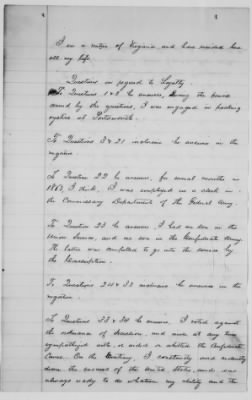 I am a native of Virginia and have resided here
all my life.
Questions in regard to Loyalty.
To Questions 1 & 2 he answers, during the period
covered by the questions, I was engaged in packing
oysters at Portsmouth.
To Questions 3 & 21 inclusive he answers in the
negative.
To Question 22 he answers, for several months in
1863, I think, I was employed as a clerk in
the Commissary Department of the Federal Army.
To Question 23 he answers, I had no son in the
Union Service, and one son in the Confederate Army.
The latter was compelled to go into the service by
the Conscription.
To Questions 24 & 32 inclusive he answers in the
negative.
To Questions 33 & 34 he answers. I voted against
the ordinance of Secession, and never at any time
sympathized with, or aided or abetted the Confederate
Cause. On the Contrary, I constantly and
desire the success of the United States, and was
always ready to do whatever my ability and the